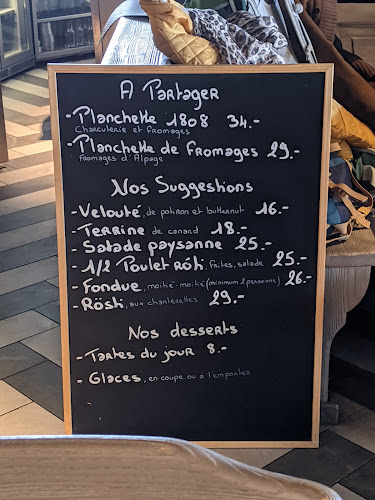 A Partager
- Planchette 1808 34.-
Charcuterie et fromages
- Planchette de fromages 29.-
fromages d'Alpage
Nos Suggestions
- Velouté, de potiron et butternut 16.-
- Terrine de canard 18.-
- Salade paysanne 25.-
- 1/2 Poulet rôti, frites, salade 25.-
- Fondue, moitié-moitié (minimum 2 personne) 26.-
- Rösti, aux chanterelles 29.-
Nos desserts
- Tartes du jour 8.-
- Glaces, en coupe ou à l'emporter